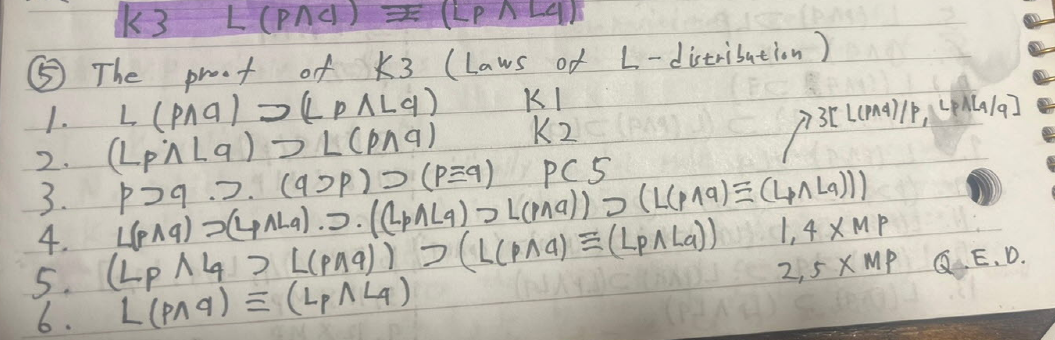 K3 L(p∧q) ≡ (Lp∧Lq)
⑤ The proof of K3 (Laws of L-distribution)
1. L(p∧q) ⊃ (Lp∧Lq) K1
2. (Lp∧Lq) ⊃ L(p∧q) K2
3. p⊃q .⊃. (q⊃p) ⊃ (p≡q) PC5
↗ 3[L(p∧q)/p, Lp∧Lq/q]
4. L(p∧q) ⊃(Lp∧Lq) .⊃. ((Lp∧Lq) ⊃ L(p∧q)) ⊃ (L(p∧q) ≡ (Lp∧Lq)))
5. (Lp∧Lq ⊃ L(p∧q)) ⊃ (L(p∧q) ≡ (Lp∧Lq)) 1,4 × MP
6. L(p∧q) ≡ (Lp∧Lq) 2,5 × MP Q.E.D.